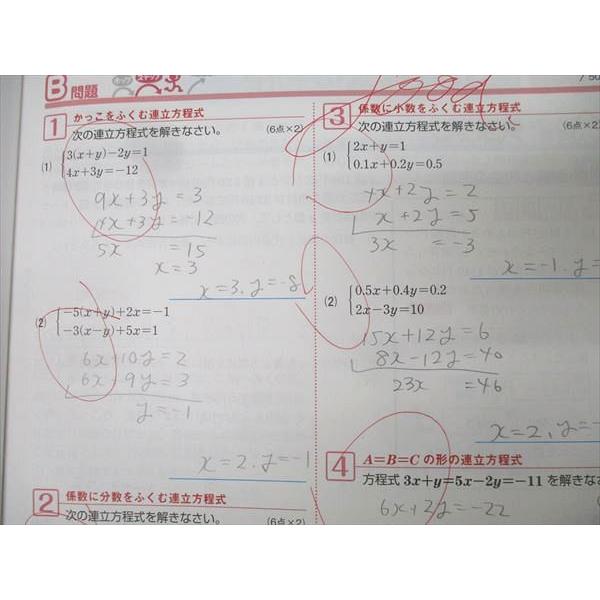 B 問題
/50
1 かっこをふくむ連立方程式
次の連立方程式を解きなさい。 (6点×2)
(1) {3(x+y)-2y=1
4x+3y=-12
9x+3y=3
4x+3y=-12
5x =15
x=3
x=3, y=-8
(2) {-5(x+y)+2x=-1
-3(x-y)+5x=1
6x+10y=2
6x+9y=3
y=-1
x=2. y=-1
2 係数に分数をふくむ連立方程式
次の連立方程式を解きなさい。 (6点×2)
good
3 係数に小数をふくむ連立方程式
次の連立方程式を解きなさい。 (6点×2)
(1) {2x+y=1
0.1x+0.2y=0.5
4x+2y=2
x+2y=5
3x =-3
x=-1. y=
(2) {0.5x+0.4y=0.2
2x-3y=10
15x+12y=6
8x-12y=40
23x =46
x=2, y=-
4 A=B=C の形の連立方程式
方程式 3x+y=5x-2y=-11 を解きな
6x+2y=-22